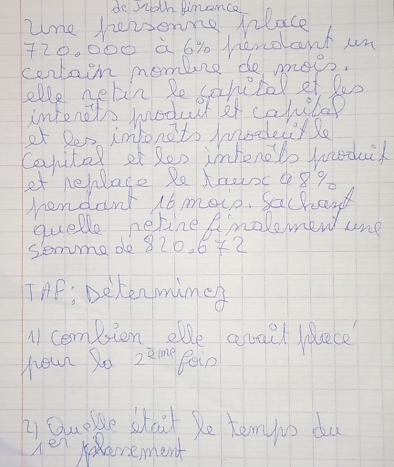 de Math finance
Une personne place
720.000 à 6% pendant un
certain nombre de mois.
elle retir le capital et les
interêts produit et capital
et les interêts produit le
Capital et les interêts produit
et replace le taux a 8%
pendant 16 mois. Sachant
quelle retire finalement une
somme de 820.672
TAF: Déterminez
1) combien elle avait placé
pour la 2ème fois
2) Quelle était le temps du
1er placement